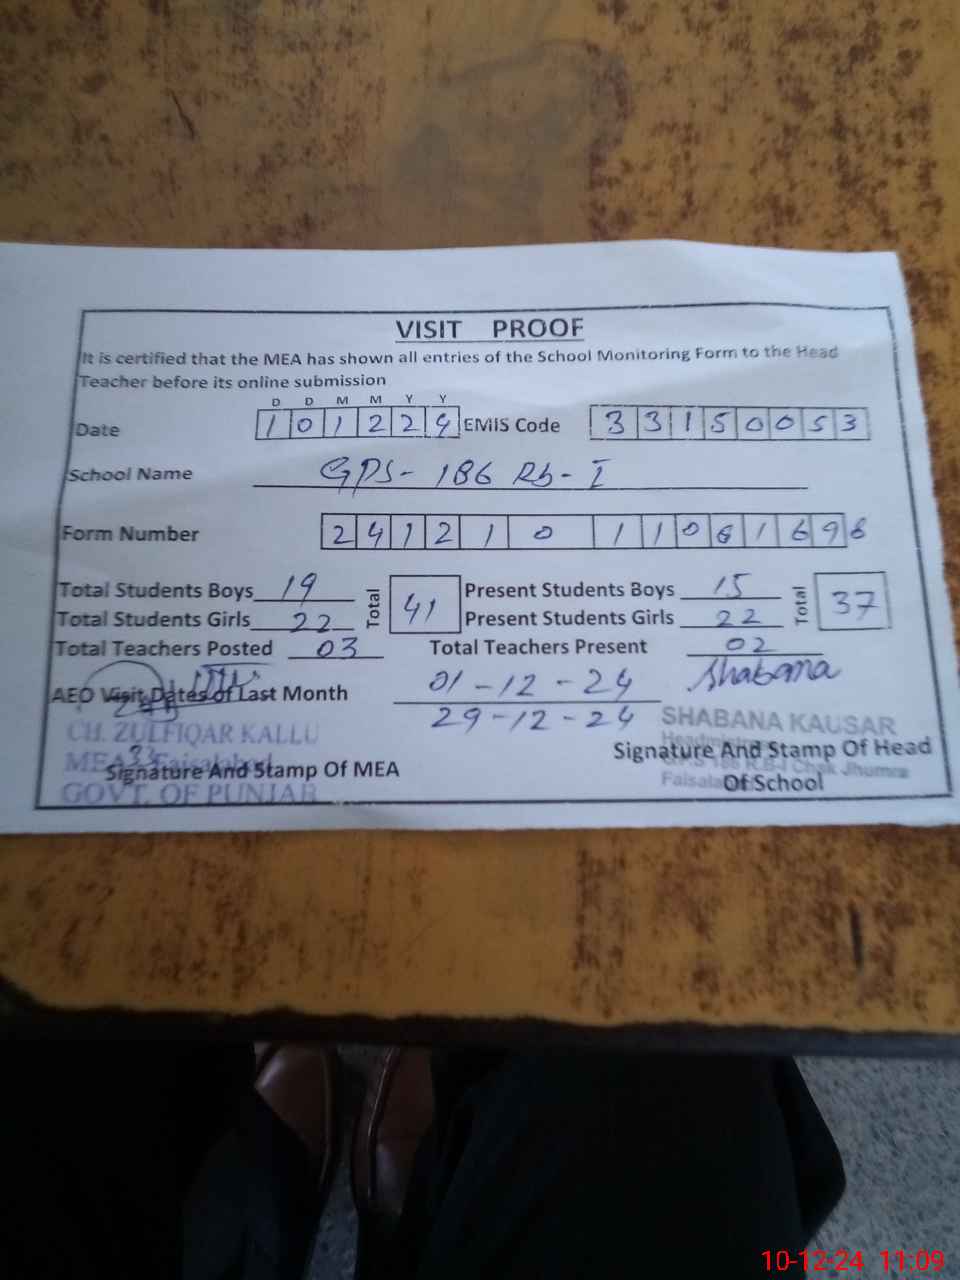 VISIT PROOF
It is certified that the MEA has shown all entries of the School Monitoring Form to the Head
Teacher before its online submission
D D M M Y Y
Date 1 0 1 2 2 4 EMIS Code 3 3 1 5 0 0 5 3
School Name GPS- 186 Rb- I
Form Number 2 4 1 2 1 0 1 1 0 6 1 6 9 8
Total Students Boys 19 Total 41 Present Students Boys 15 Total 37
Total Students Girls 22 Present Students Girls 22
Total Teachers Posted 03 Total Teachers Present 02
AEO Visit Dates of Last Month 01-12-24 Shabana
29-12-24
CH. ZULFIQAR KALLU
SHABANA KAUSAR
MEA Faisalabad
Signature And Stamp Of MEA
GOVT. OF PUNJAB
Signature And Stamp Of Head
186 R.B-I Chak Jhumra
Of School
10-12-24 11:09